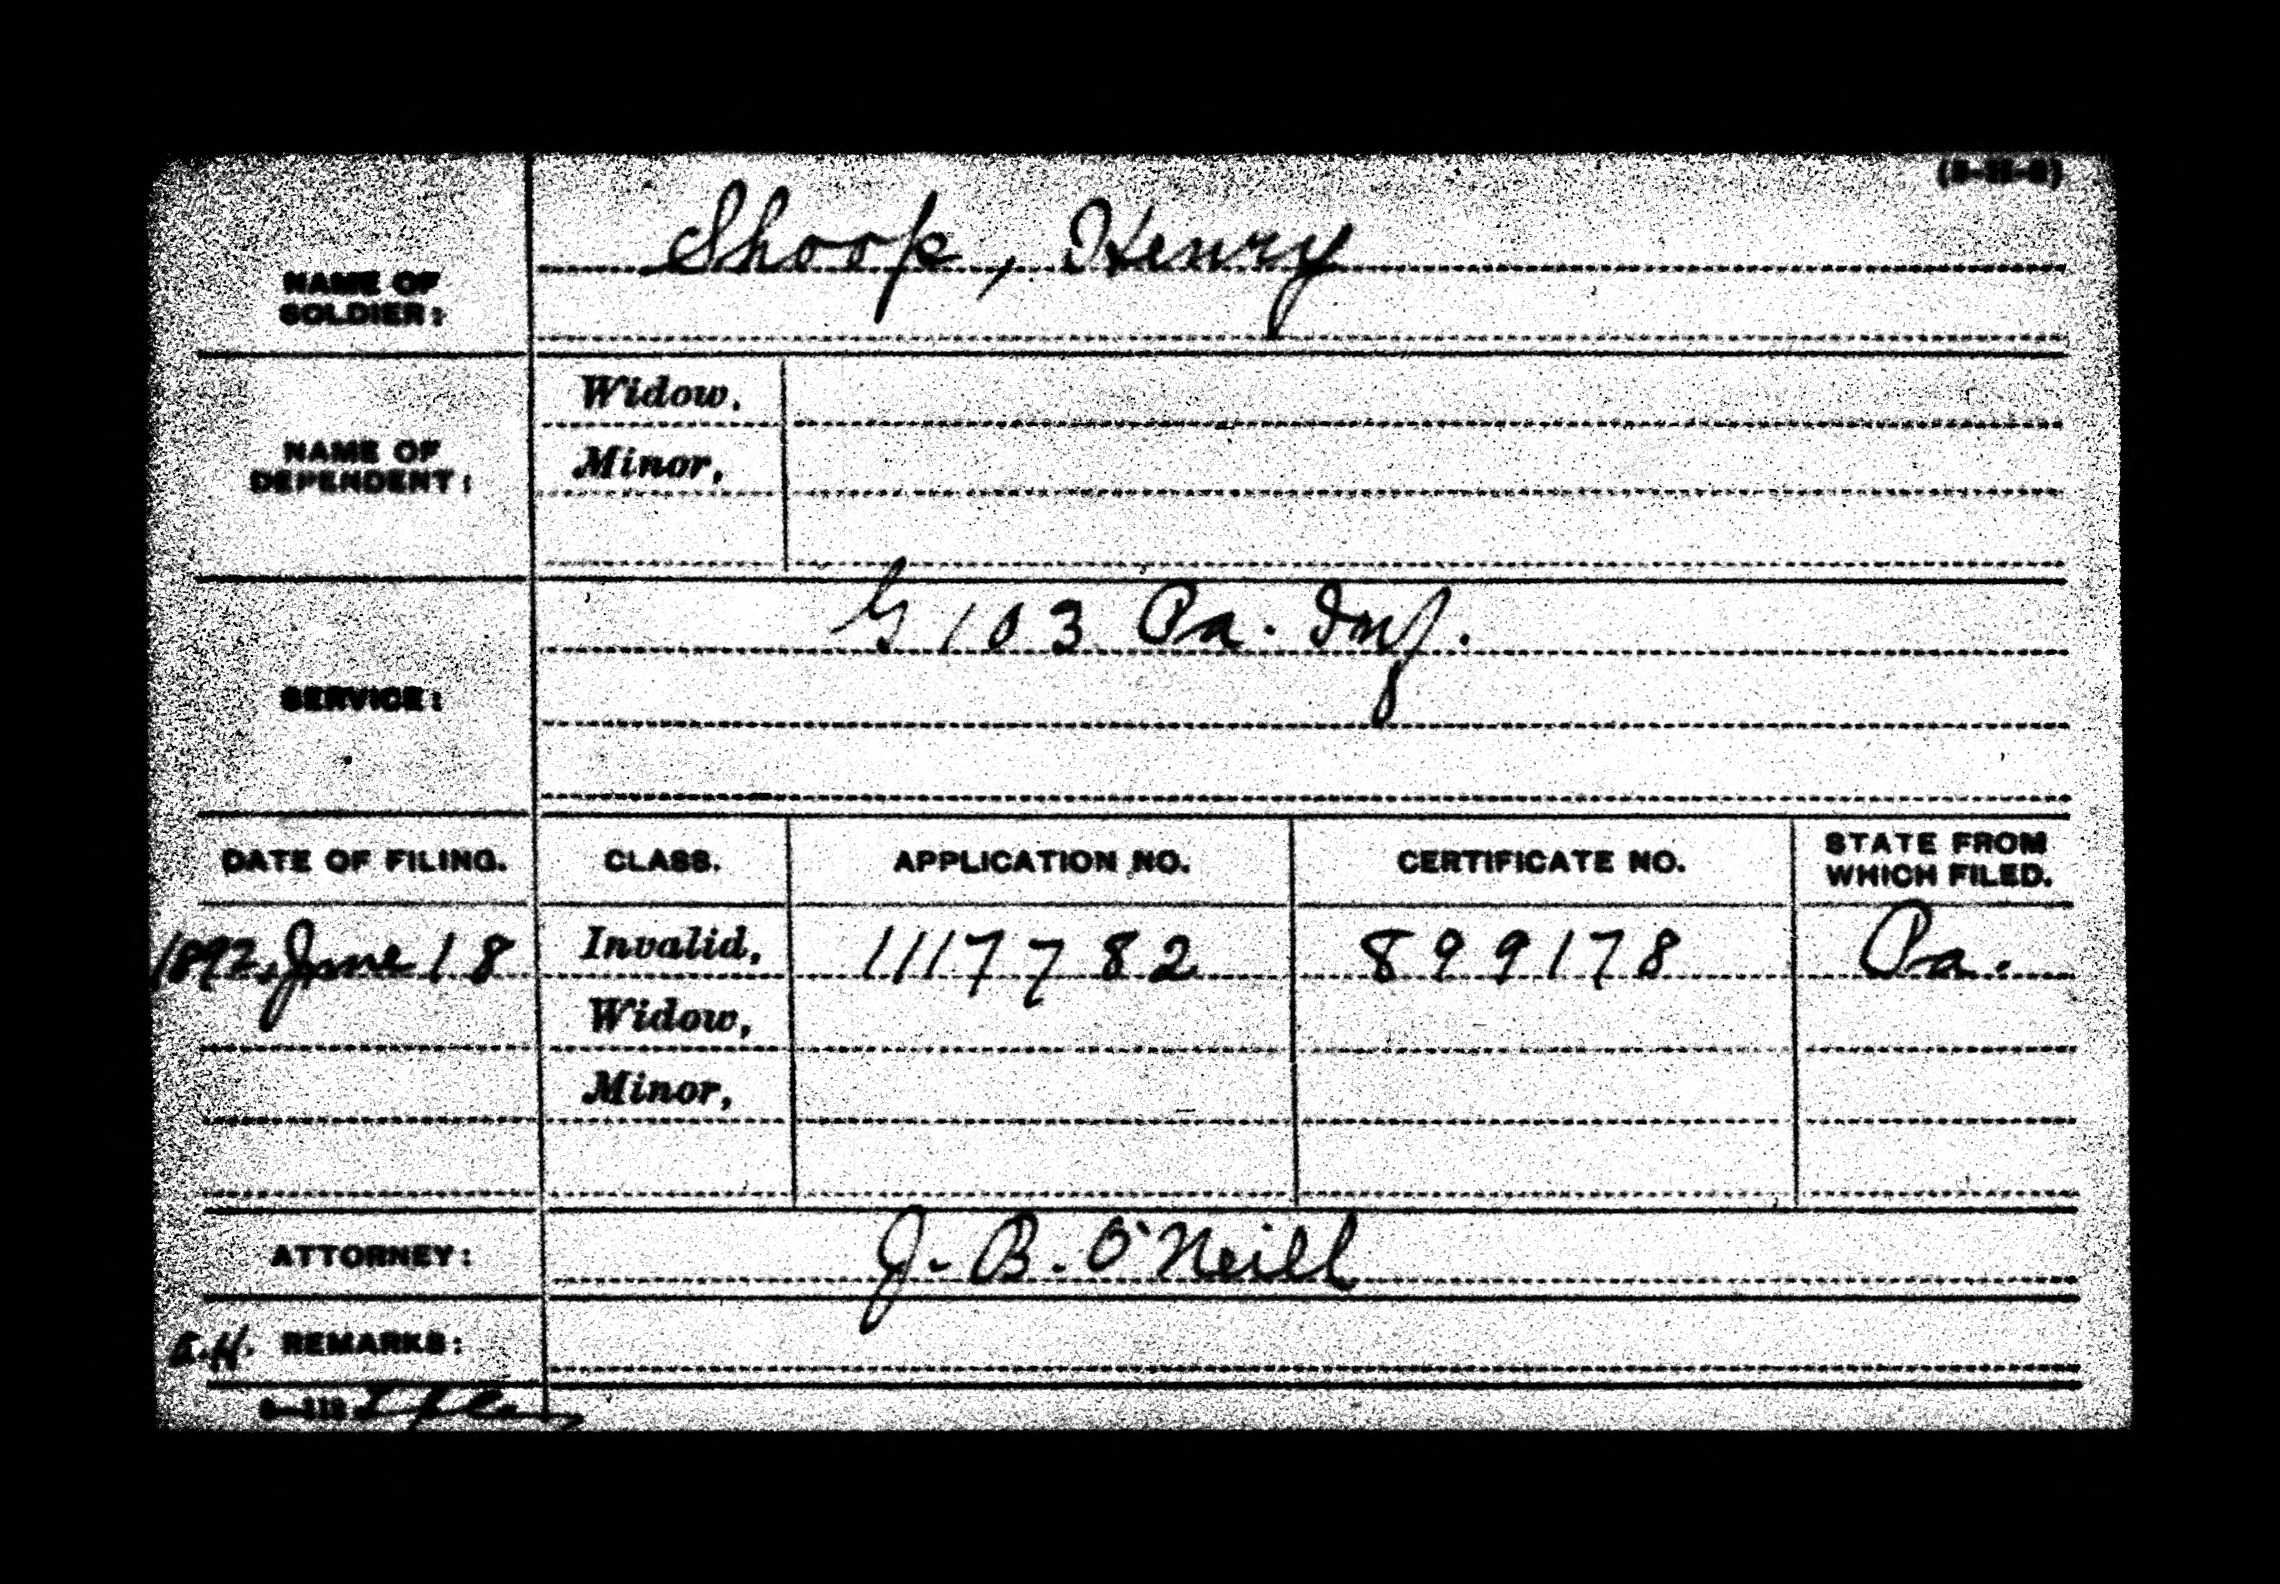 Shoop, Henry
NAME OF
SOLDIER:
Widow,
NAME OF
DEPENDENT:
Minor,
G 103 Pa. Inf.
SERVICE:
DATE OF FILING. CLASS. APPLICATION NO. CERTIFICATE NO. STATE FROM
WHICH FILED.
1892, June 18 Invalid, 1117782 899178 Pa.
Widow,
Minor,
ATTORNEY: J. B. O'Neill
REMARKS: